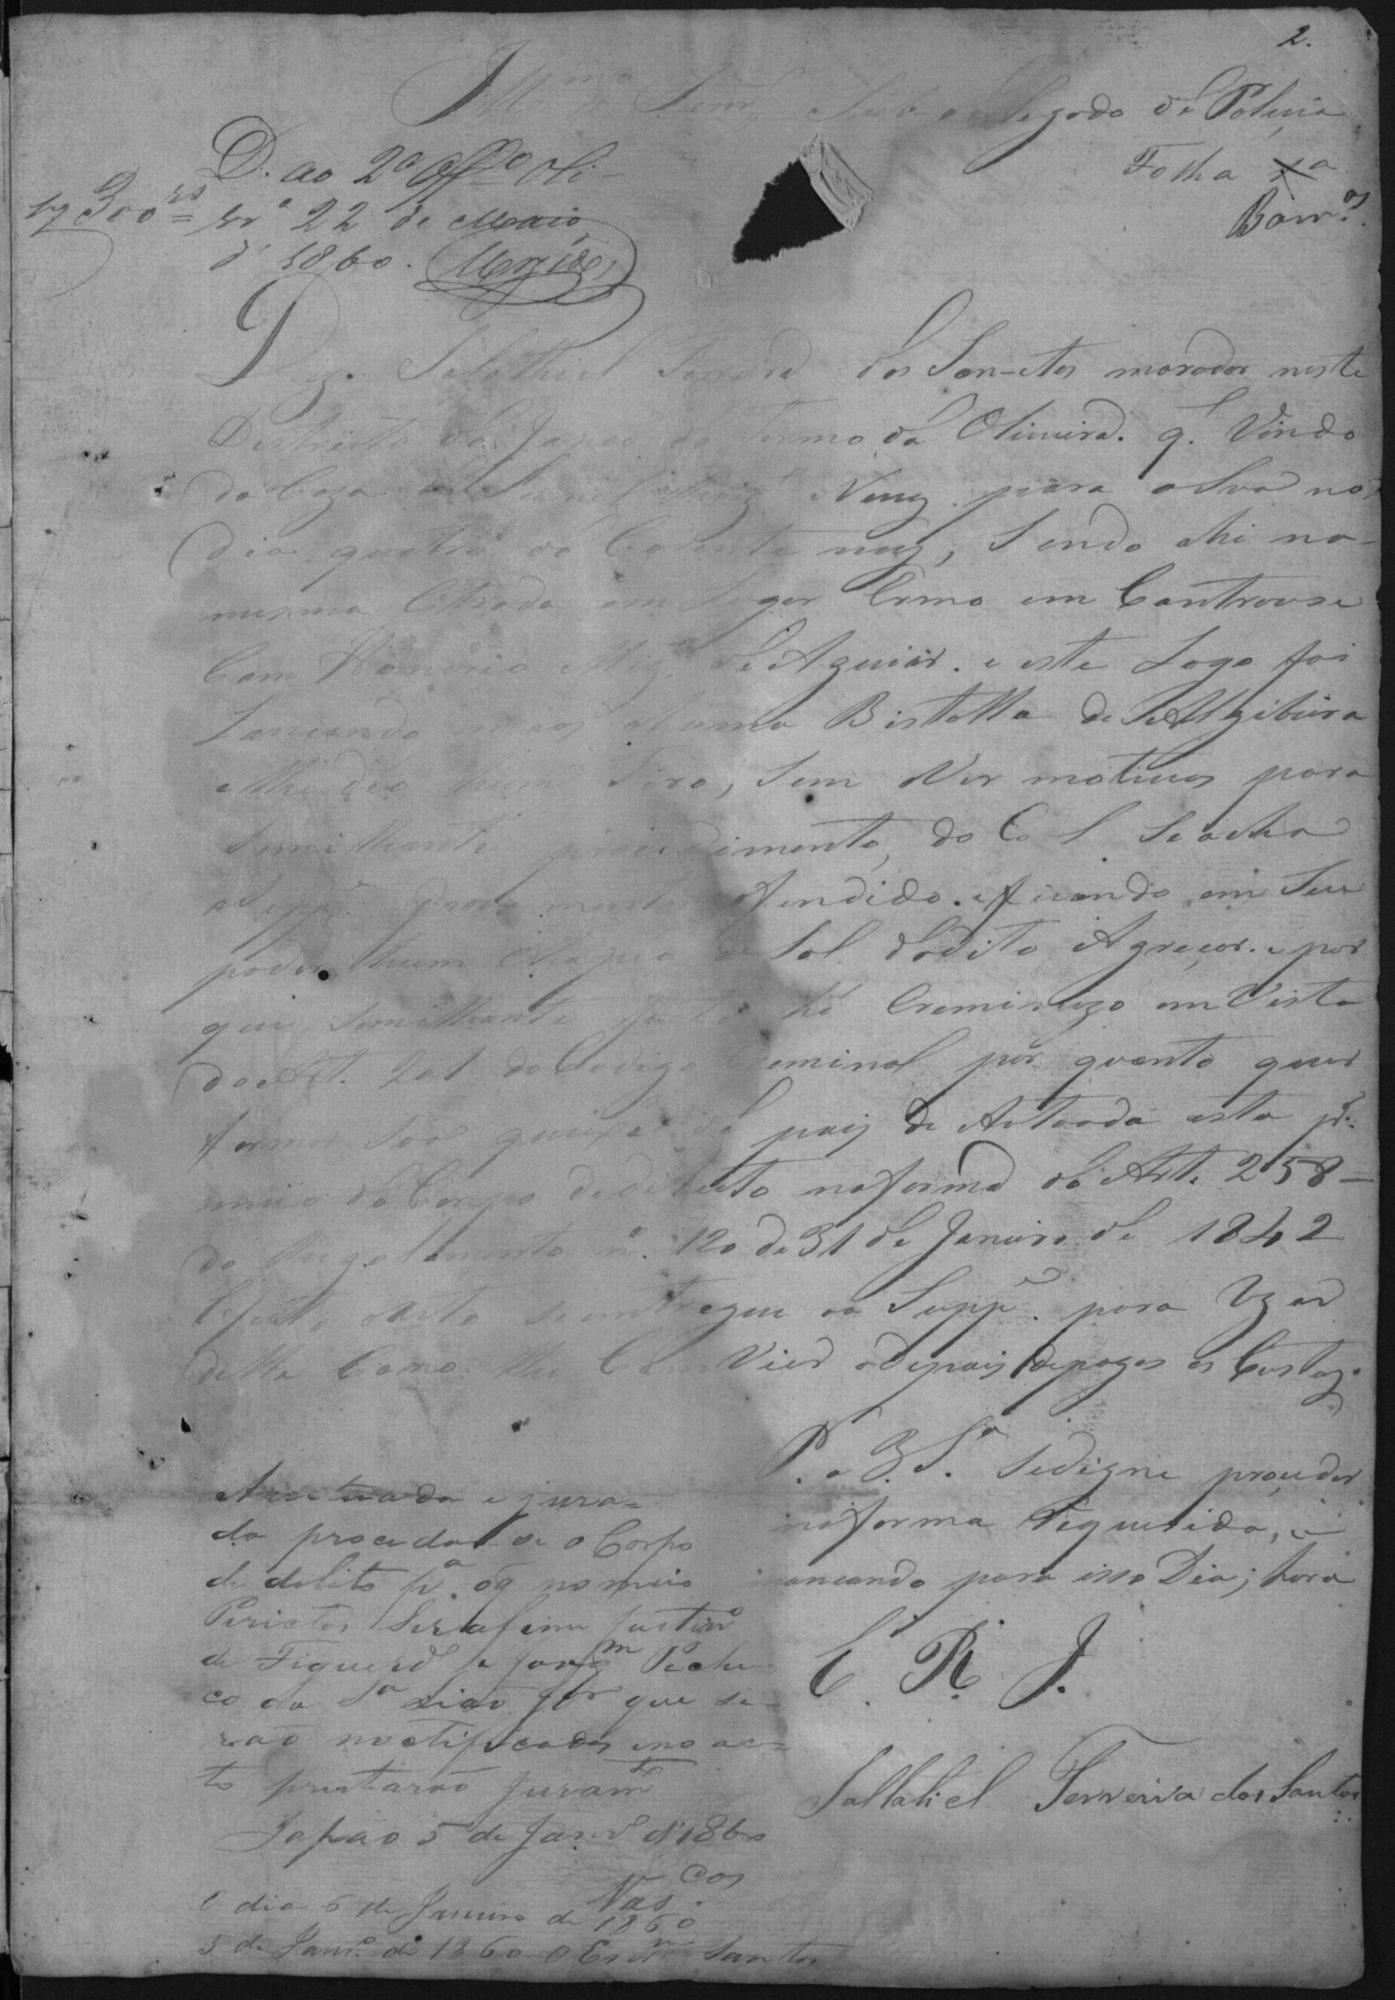 2.
Illmo Senr Sub delegado de Policia
Folha 1a
Barros.
D. ao 2º Offº Oli
300rs 22 de Maio
d' 1860.
Diz Salathiel Ferreira dos San-ctos morador neste
Destricto do Japaõ do Termo da Oliveira. q. Vindo
da Caza de Nunz para a Sua no
dia quatro do Corente mez, Sendo ahi na
mesma Estrada em Logar Ermo em Controuse
Com Honorio de Aguiar. e este Logo foi
Lancando maõ a huma Bistolla de Algibeira
e lhe deo hum Tiro, Sem Ver motivos para
Semilhante procedimento, do Se acha
o Suppe. Gravemente ofendido. e ficando em Seu
poder hum Chapeo de Sol do dito Agreçor. e por
que Semilhante facto hé Creminozo em Vista
do Art. 201 do Codigo Creminal por quanto quer
formar Sua queixa de pois de Autoada esta
do Corpo de delicto na forma do Art. 258
do Regolamento nº. 120 de 31 de Janeiro de 1842
e feito isto se entregue ao Suppe. para Uzar
delle Como lhe ConVier e depois de pagas as Custas.
P. a V. S.a Se digne proceder
na forma Requerida, e
marcando para isso Dia; hora
E. R. J.
Sallatiel Ferreira dos Santos
Autuada e jura-
da proceda se o Corpo
de delito pa. oq nomeio
Peritos Serafim Justino
de Figueredo e Joaqm Pache
co da Sa que se-
raõ noctificados, e no ac-
to prestaraõ Juramto
Japaõ 5 de Janro d' 1860
Vascos
O dia 6 de Janeiro de 1860
5 de Janro. de 1860 O Escram Santos